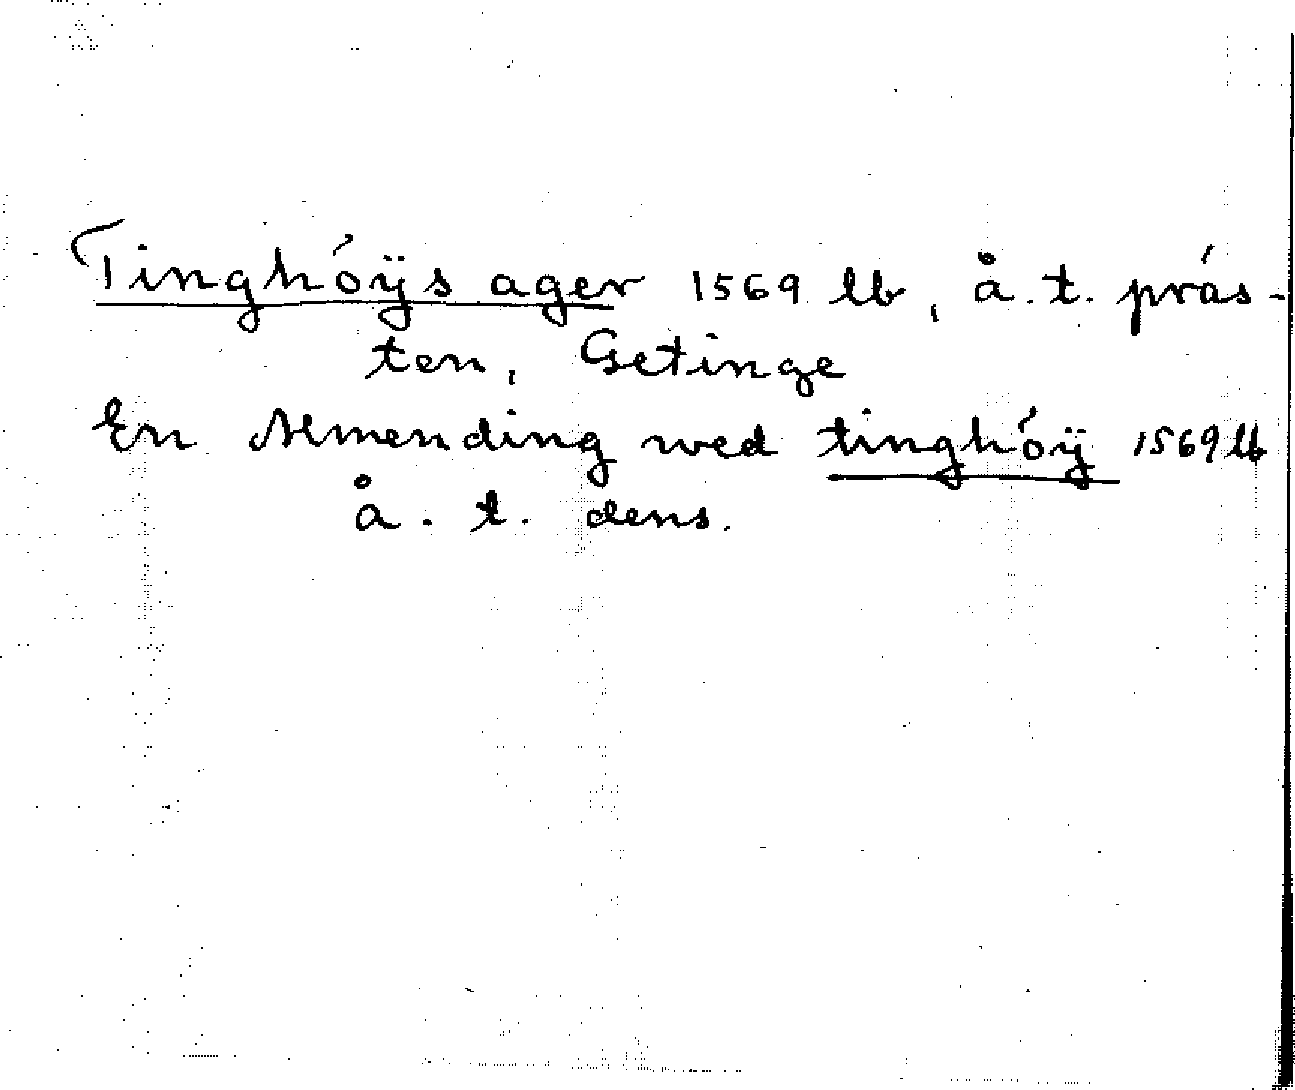 Tinghóÿs ager 1569 lb, å.t. präs-
ten, Getinge
En Almending wed tinghóÿ 1569 lb
å. t. dens.